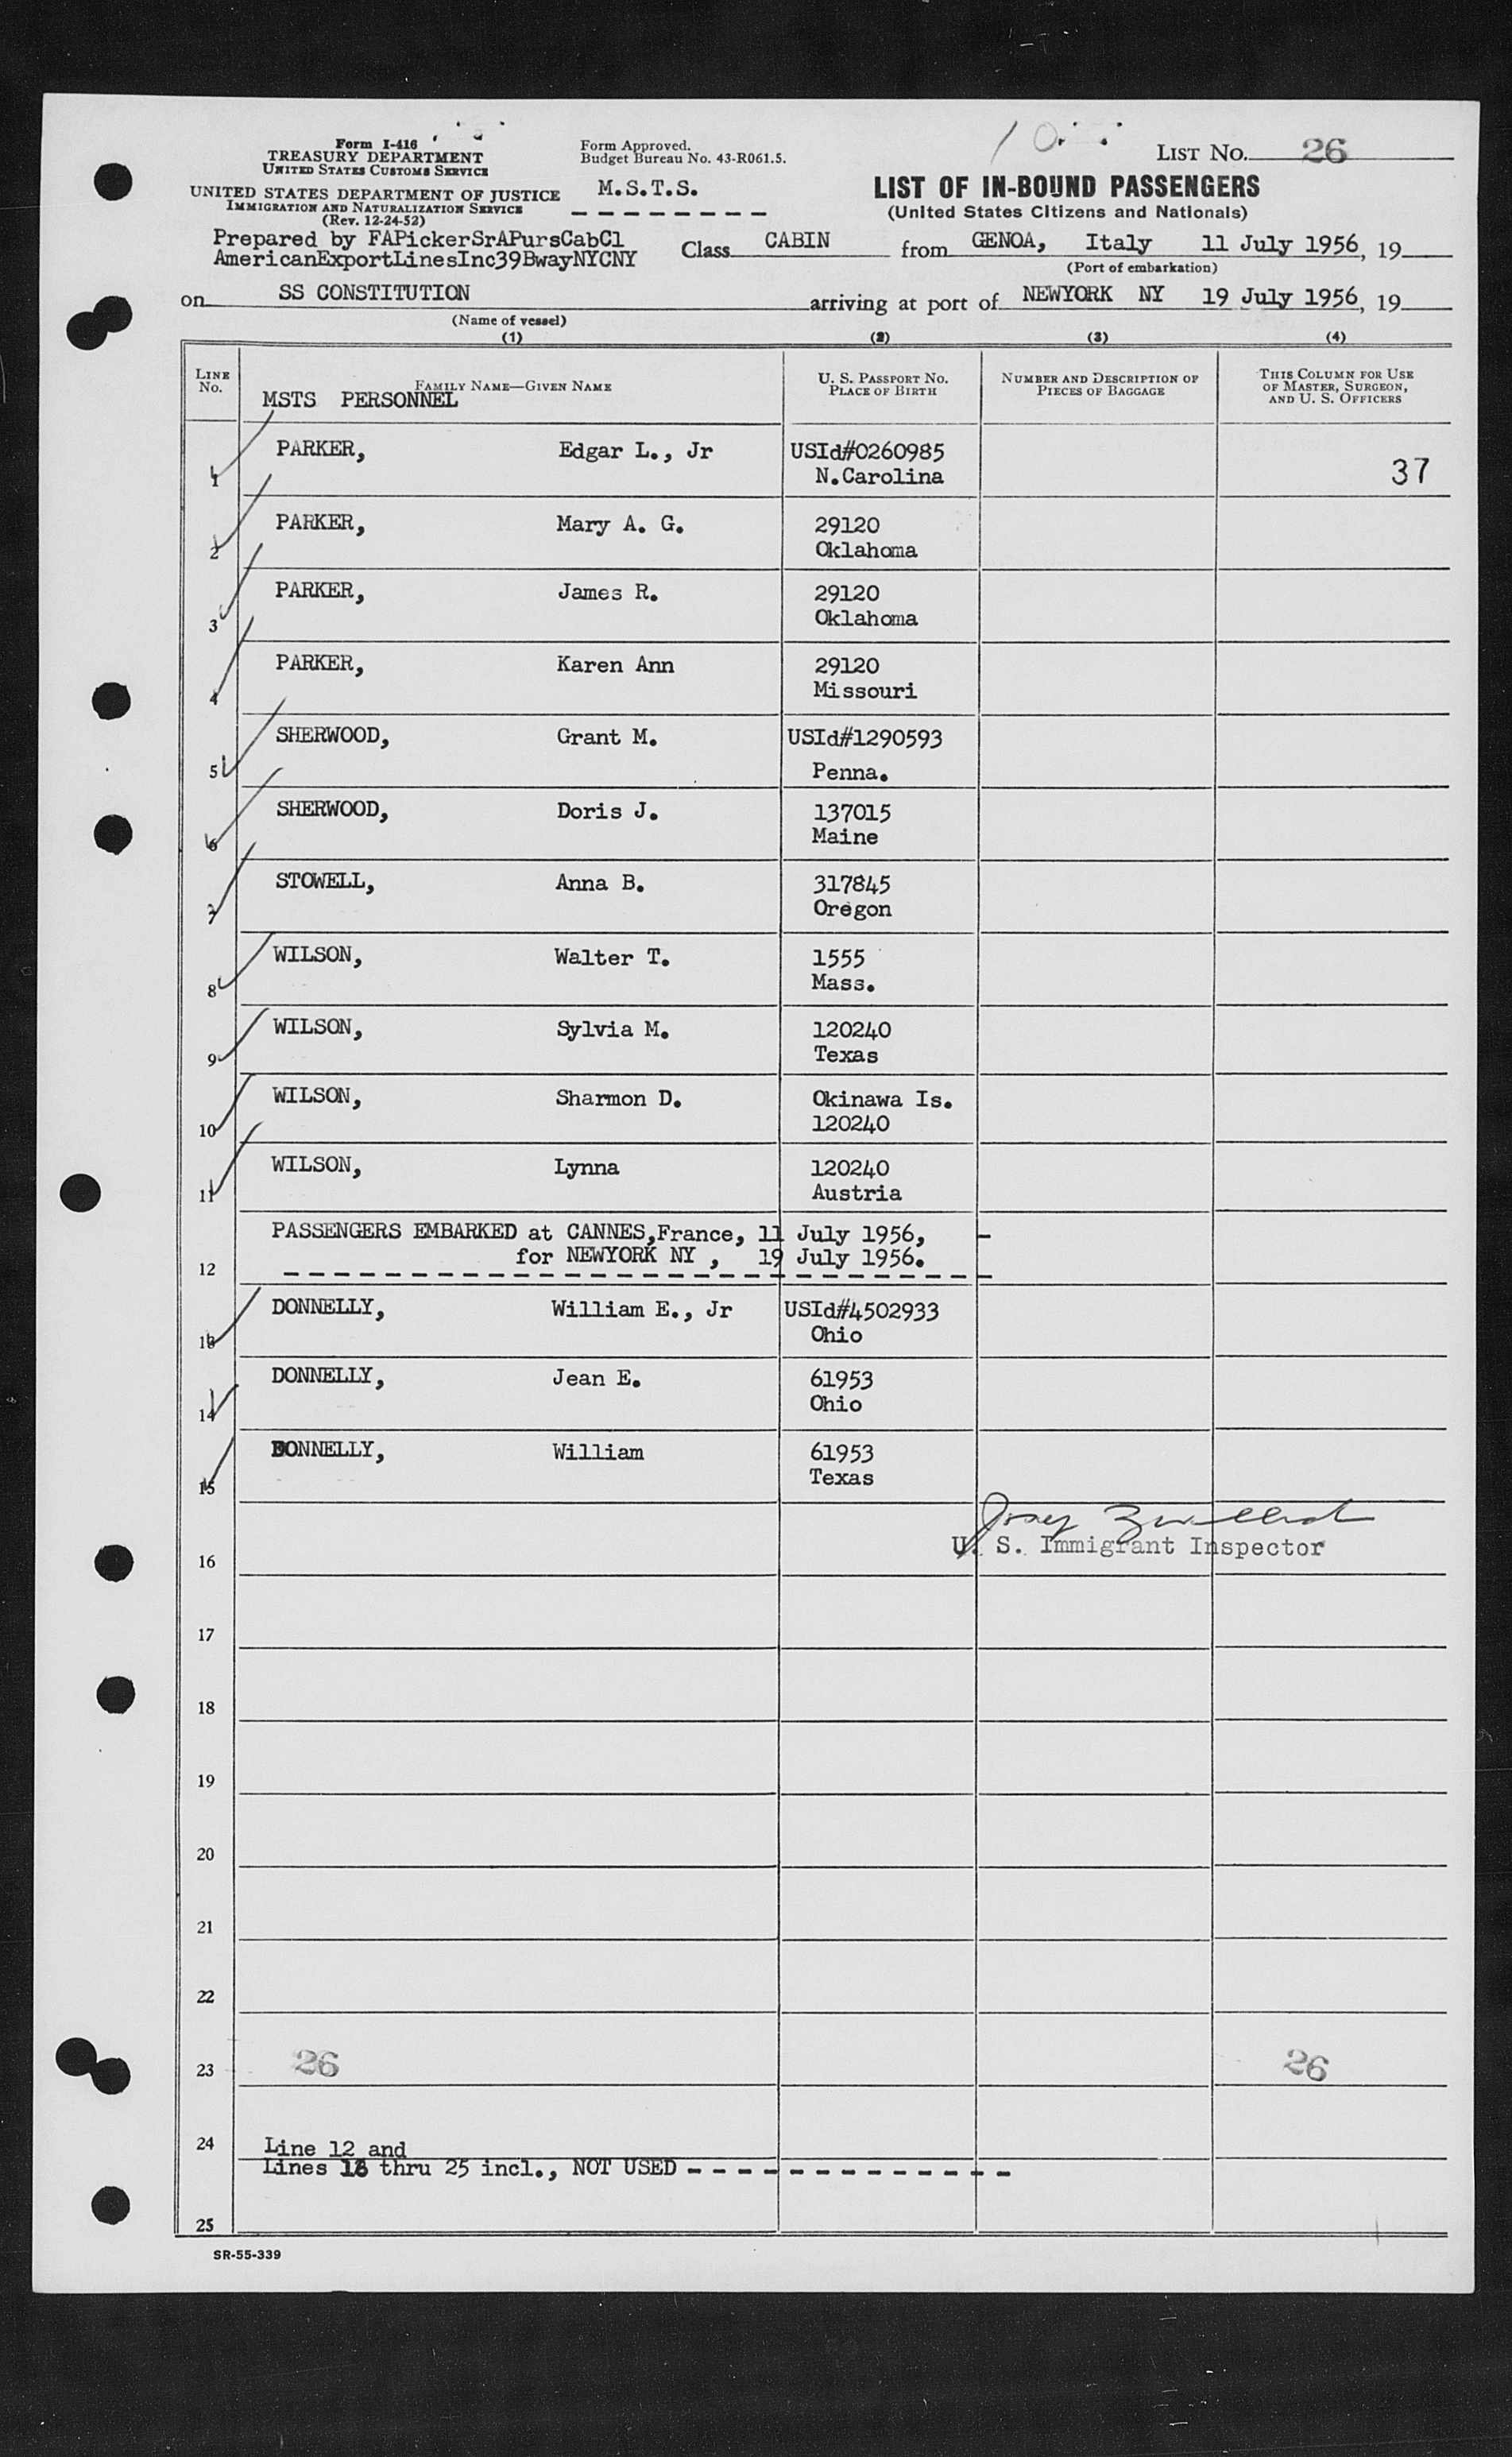 Form I-416
TREASURY DEPARTMENT
UNITED STATES CUSTOMS SERVICE
UNITED STATES DEPARTMENT OF JUSTICE
IMMIGRATION AND NATURALIZATION SERVICE
(Rev. 12-24-52)
Form Approved.
Budget Bureau No. 43-R061.5.
M.S.T.S.
LIST NO. 26
LIST OF IN-BOUND PASSENGERS
(United States Citizens and Nationals)
Prepared by FAPickerSrAPursCabCl
AmericanExportLinesInc39BwayNYCNY
Class CABIN from GENOA, Italy 11 July 1956, 19
(Port of embarkation)
on SS CONSTITUTION arriving at port of NEWYORK NY 19 July 1956, 19
(Name of vessel)
(1) (2) (3) (4)
LINE No. FAMILY NAME—GIVEN NAME U. S. PASSPORT NO. PLACE OF BIRTH NUMBER AND DESCRIPTION OF PIECES OF BAGGAGE THIS COLUMN FOR USE OF MASTER, SURGEON, AND U. S. OFFICERS
MSTS PERSONNEL
1 PARKER, Edgar L., Jr USId#0260985
N.Carolina 37
2 PARKER, Mary A. G. 29120
Oklahoma
3 PARKER, James R. 29120
Oklahoma
4 PARKER, Karen Ann 29120
Missouri
5 SHERWOOD, Grant M. USId#1290593
Penna.
6 SHERWOOD, Doris J. 137015
Maine
7 STOWELL, Anna B. 317845
Oregon
8 WILSON, Walter T. 1555
Mass.
9 WILSON, Sylvia M. 120240
Texas
10 WILSON, Sharmon D. Okinawa Is.
120240
11 WILSON, Lynna 120240
Austria
PASSENGERS EMBARKED at CANNES,France, 11 July 1956, -
12 for NEWYORK NY , 19 July 1956.
13 DONNELLY, William E., Jr USId#4502933
Ohio
14 DONNELLY, Jean E. 61953
Ohio
15 DONNELLY, William 61953
Texas
16 U. S. Immigrant Inspector
17
18
19
20
21
22
23 26 26
24 Line 12 and
Lines 16 thru 25 incl., NOT USED - - - - - - - - - - - - - -
25
SR-55-339